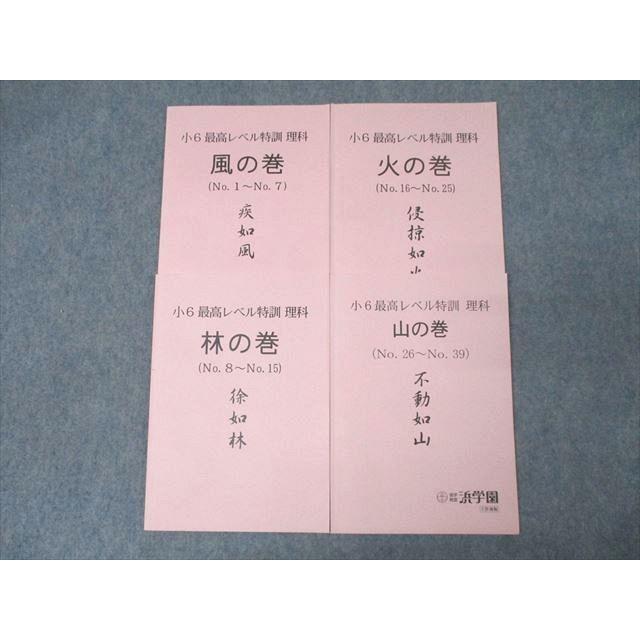 小6 最高レベル特訓 理科
風の巻
(No. 1～No. 7)
疾如風
小6 最高レベル特訓 理科
火の巻
(No. 16～No. 25)
侵掠如火
小6 最高レベル特訓 理科
林の巻
(No. 8～No. 15)
徐如林
小6 最高レベル特訓 理科
山の巻
(No. 26～No. 39)
不動如山
浜学園